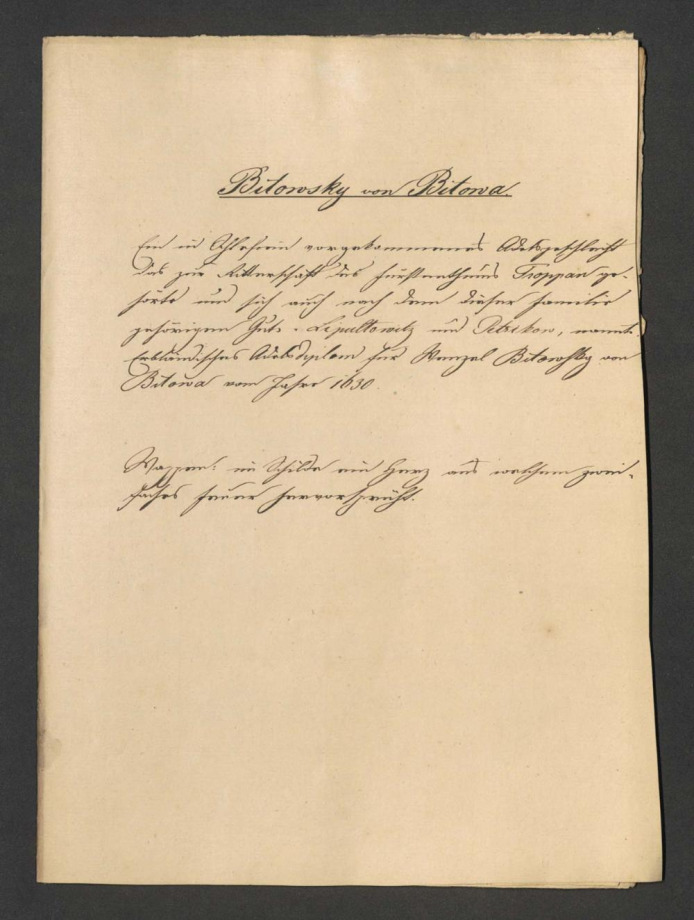 Bitowsky von Bitowa.
Ein in Schlesien vorgekommenes Adelsgeschlecht
das zur Ritterschaft des Fürstenthums Troppau ge-
hörte und sich auch nach dem dieser Familie
gehörigen Gute Lipultowitz und Petrikow, nannte.
Erbländisches Adelsdiplom für Wenzel Bitowsky von
Bitowa vom Jahre 1630.
Wappen: im Schilde ein Herz aus welchem zwei-
faches Feuer hervorsprüht.